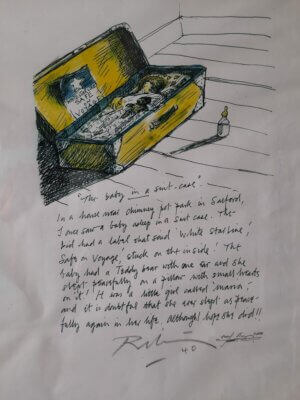 SAFE
VOYAGE
"The baby in a suit-case".
In a house near chimney pot park in Salford,
I once saw a baby asleep in a suit case. The
kid had a label that said 'White Star Line,'
Safe on Voyage, stuck on the inside! The
baby had a Teddy bear with one ear and she
slept peacefully on a pillow with small hearts
on it! It was a little girl called 'maria'.
and it is doubtful that she ever slept as peace-
fully again in her life. Although I hope she did!!
40